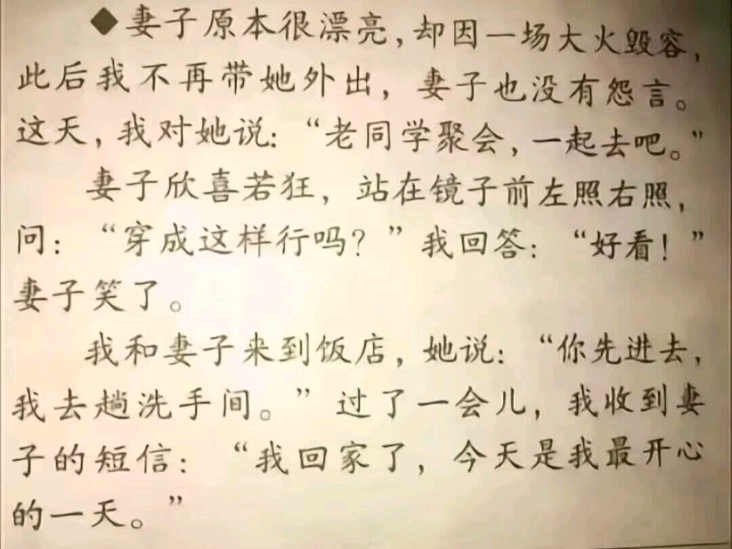 ◆妻子原本很漂亮，却因一场大火毁容，
此后我不再带她外出，妻子也没有怨言。
这天，我对她说：“老同学聚会，一起去吧。”
妻子欣喜若狂，站在镜子前左照右照，
问：“穿成这样行吗？”我回答：“好看！”
妻子笑了。
我和妻子来到饭店，她说：“你先进去，
我去趟洗手间。”过了一会儿，我收到妻
子的短信：“我回家了，今天是我最开心
的一天。”